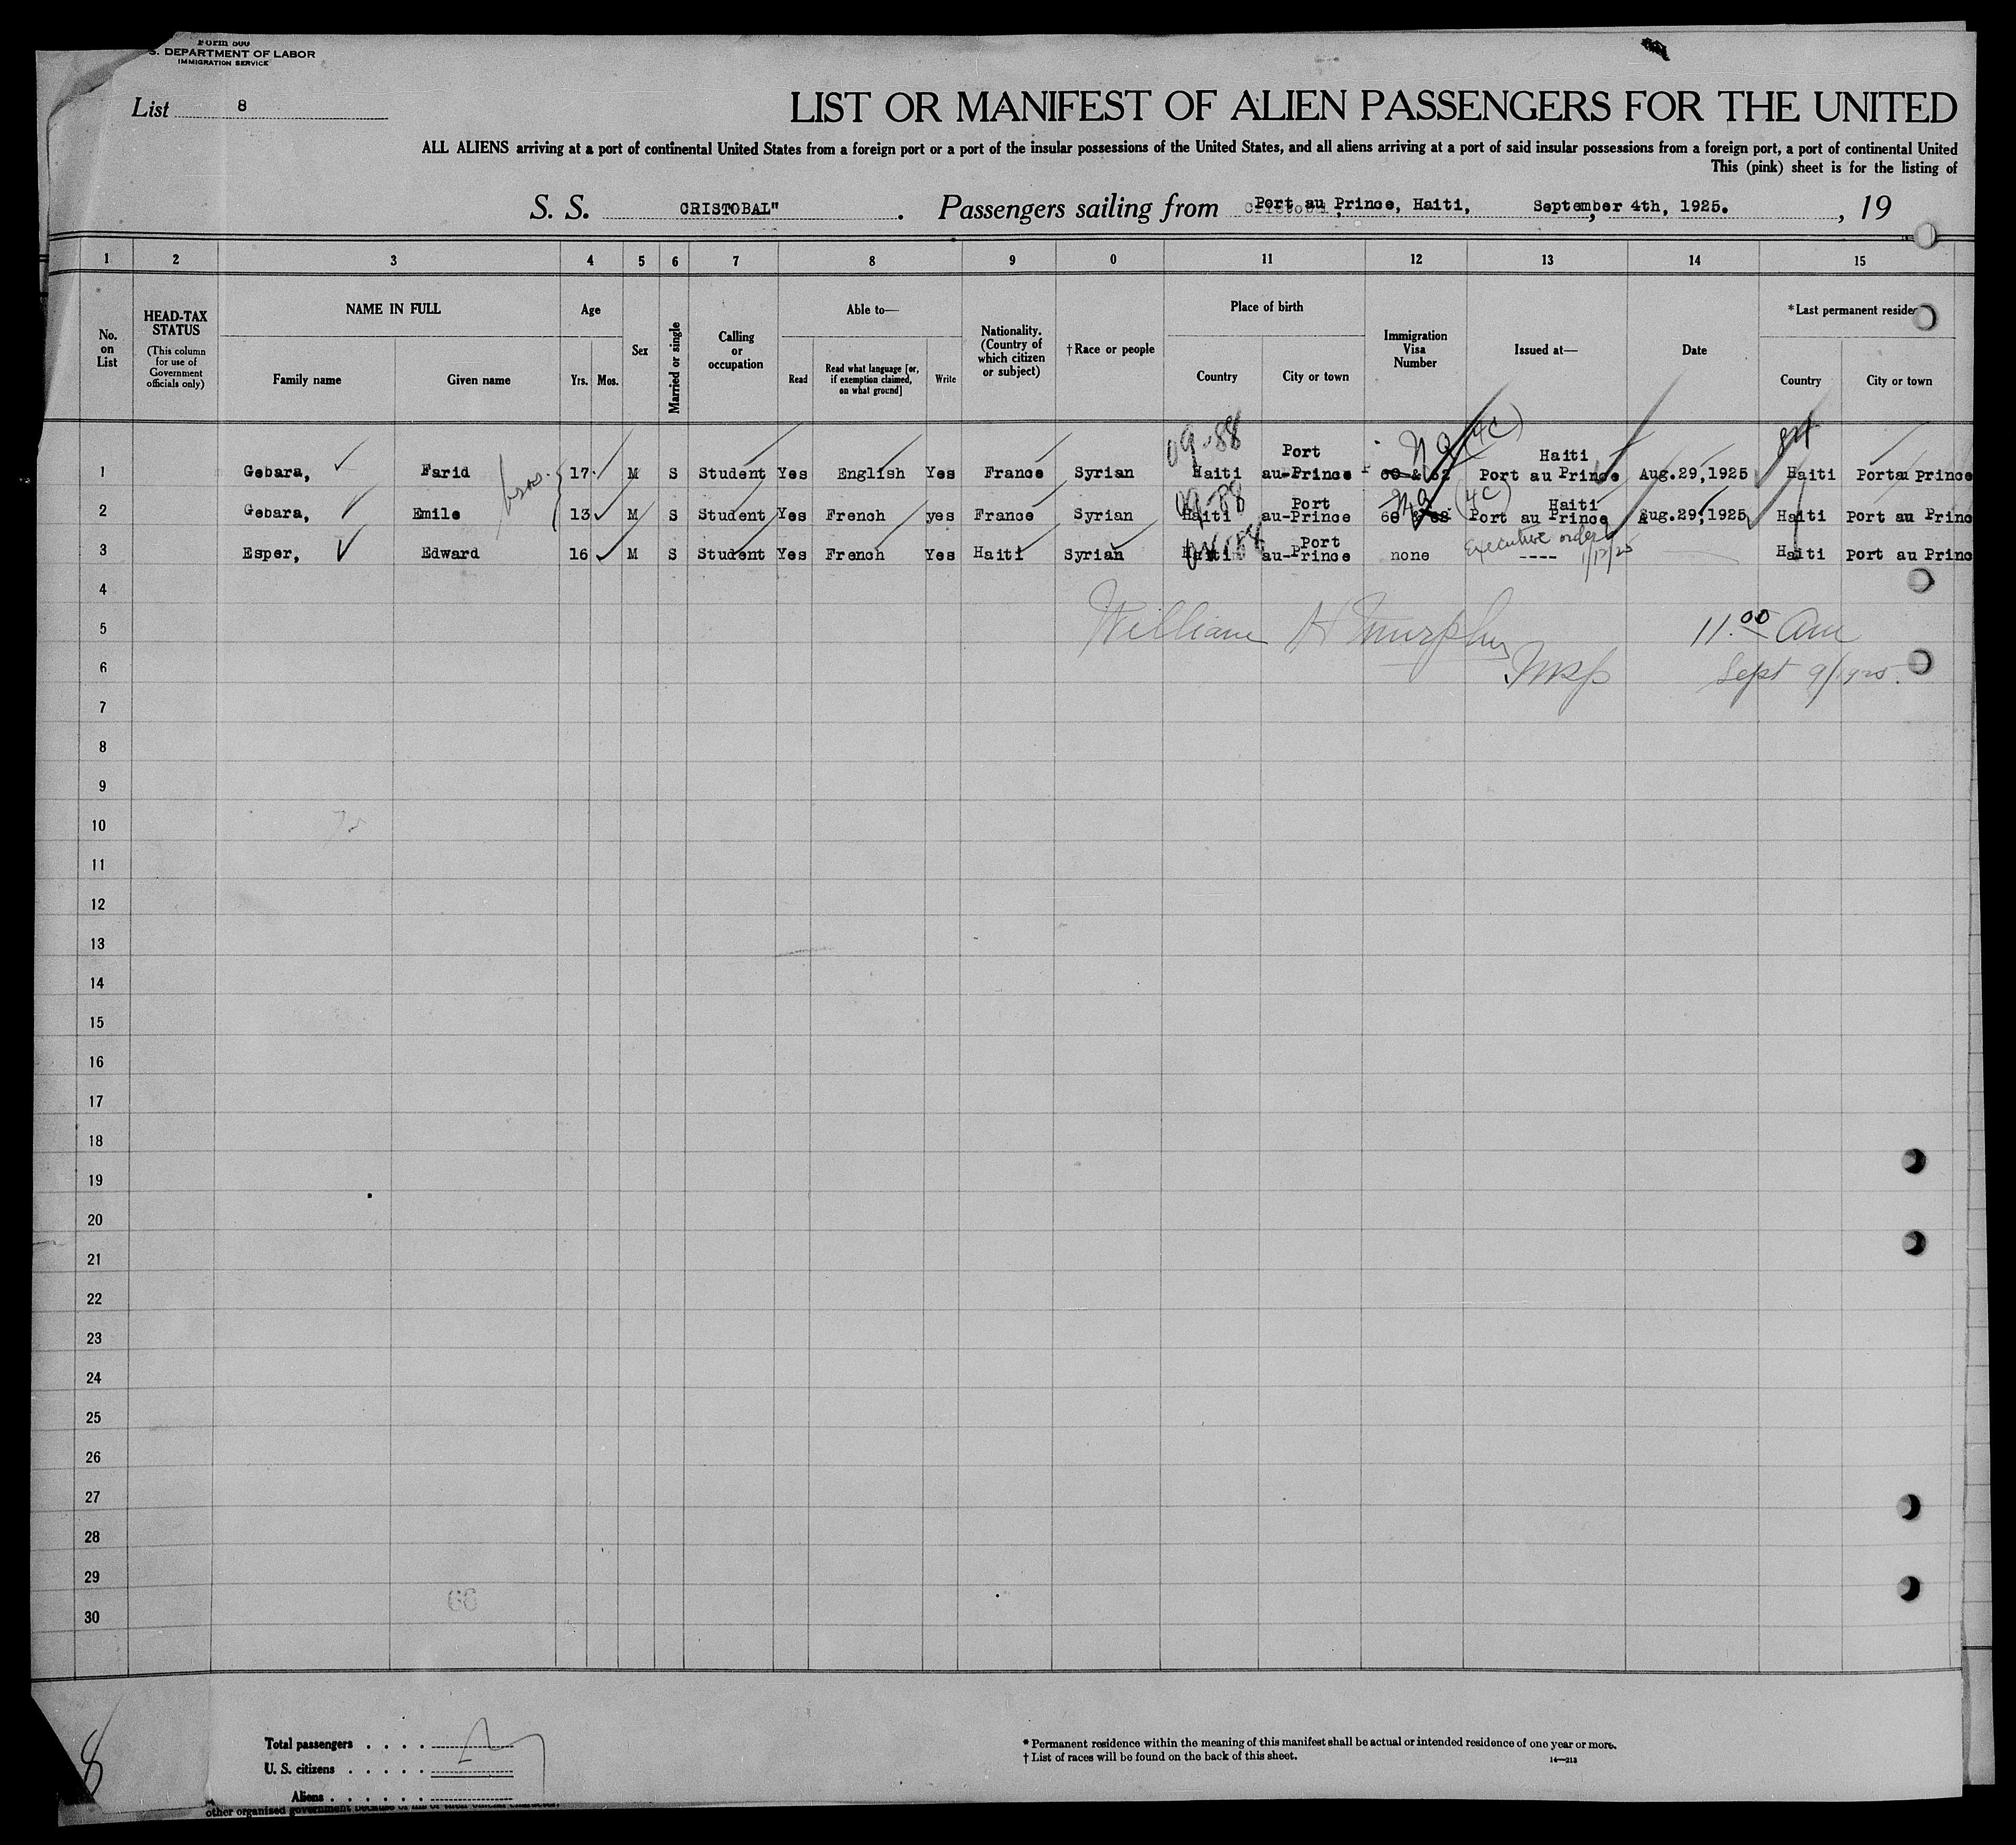 Form 500
S. DEPARTMENT OF LABOR
IMMIGRATION SERVICE
List 8
LIST OR MANIFEST OF ALIEN PASSENGERS FOR THE UNITED
ALL ALIENS arriving at a port of continental United States from a foreign port or a port of the insular possessions of the United States, and all aliens arriving at a port of said insular possessions from a foreign port, a port of continental United
This (pink) sheet is for the listing of
S. S. CRISTOBAL" . Passengers sailing from Port au Prince, Haiti, September 4th, 1925. , 19
1 2 3 4 5 6 7 8 9 0 11 12 13 14 15
No. on List
HEAD-TAX STATUS
(This column for use of Government officials only)
NAME IN FULL
Family name Given name
Age
Yrs. Mos.
Sex
Married or single
Calling or occupation
Able to—
Read
Read what language [or, if exemption claimed, on what ground]
Write
Nationality. (Country of which citizen or subject)
†Race or people
Place of birth
Country City or town
Immigration Visa Number
Issued at—
Date
*Last permanent residen
Country City or town
09-88 NQ (4C)
1 Gebara, Farid bros. 17 M S Student Yes English Yes France Syrian Haiti Port au-Prince 60 & 62 Haiti Port au Prince Aug.29,1925 Haiti Port au Prince
09-88 NQ (4C)
2 Gebara, Emile 13 M S Student Yes French yes France Syrian Haiti Port au-Prince Haiti Port au Prince Aug.29,1925 Haiti Port au Princ
3 Esper, Edward 16 M S Student Yes French Yes Haiti Syrian Haiti Port au-Prince none Executive order ---- Haiti Port au Princ
4
5 William H Murphy 11.00 Am
6 Insp Sept 9/1925.
7
8
9
10
11
12
13
14
15
16
17
18
19
20
21
22
23
24
25
26
27
28
29
30
Total passengers . . . .
U. S. citizens . . . . .
Aliens . . . . . .
* Permanent residence within the meaning of this manifest shall be actual or intended residence of one year or more.
† List of races will be found on the back of this sheet.
14—213
8
other organised government because of